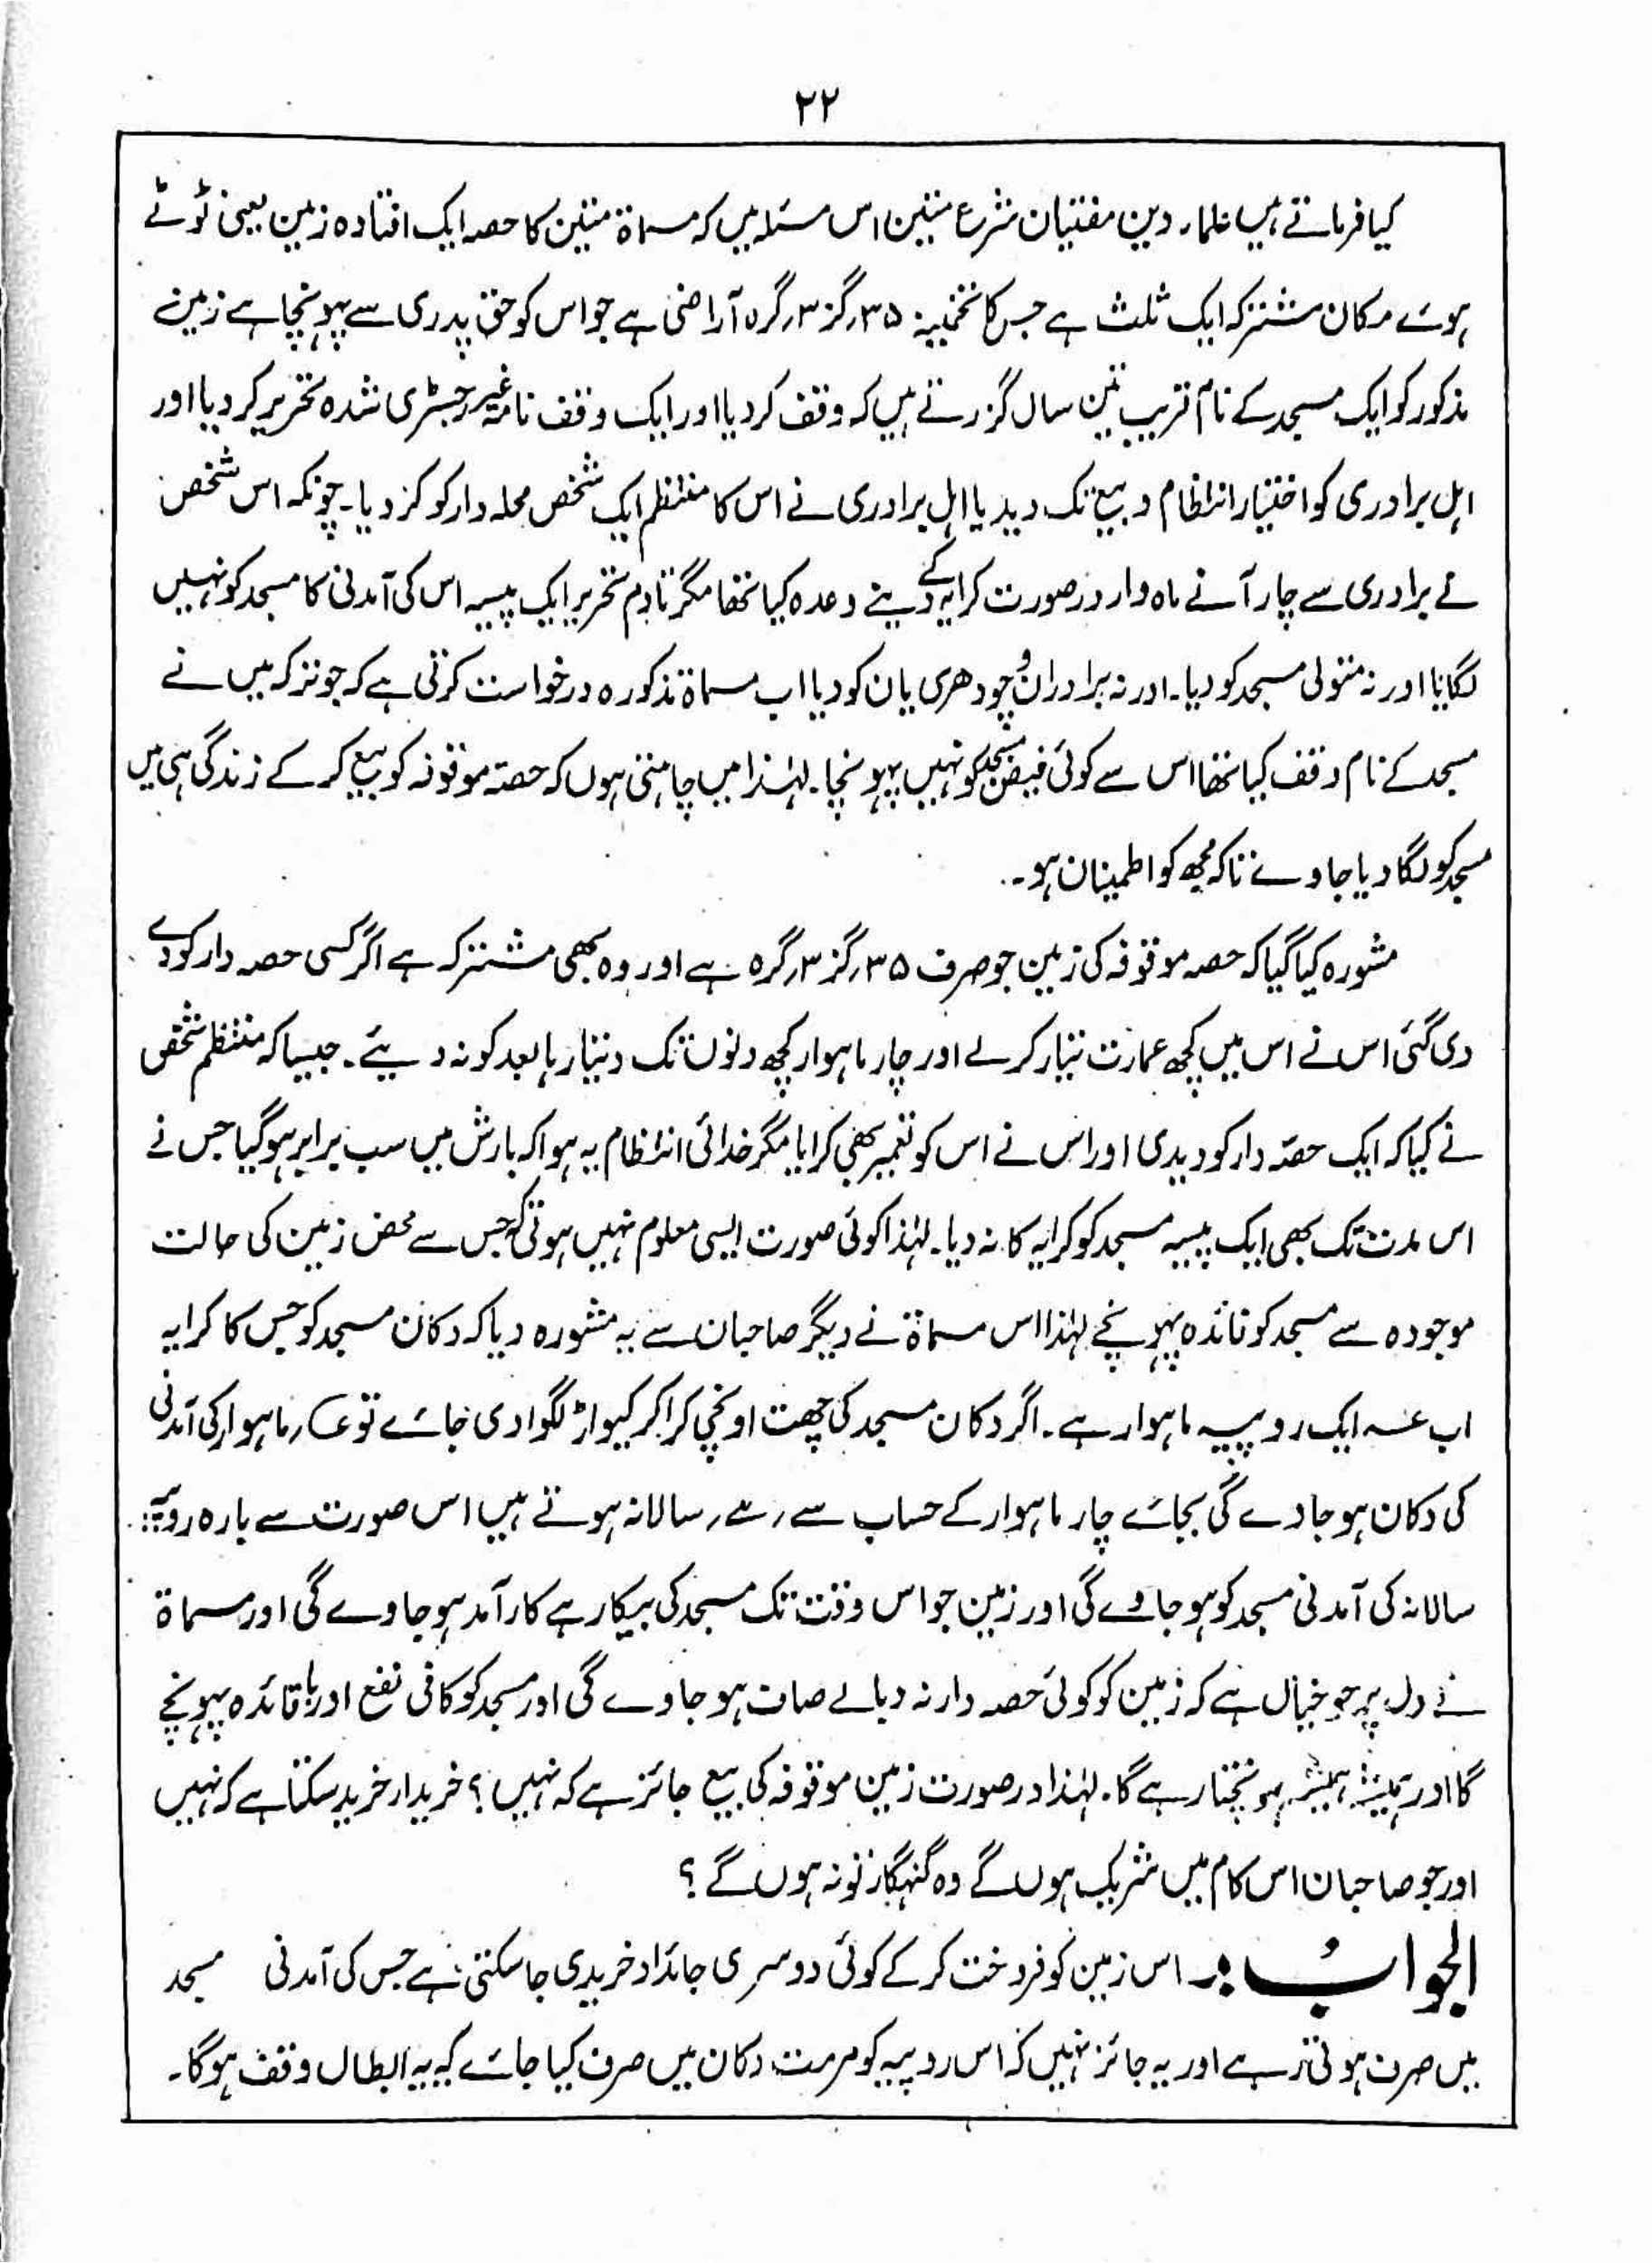 ۲۲
کیا فرماتے ہیں علماء دین مفتیان شرع متین اس مسئلہ میں کہ مسماۃ متین کا حصہ ایک افتادہ زمین یعنی ٹوٹے
ہوئے مکان مشترکہ ایک ثلث ہے جس کا تخمینہ ۳۵؍گز ۳؍گرہ آراضی ہے جو اس کو حق پدری سے پہونچا ہے زمین
مذکور کو ایک مسجد کے نام قریب تین سال گزرتے ہیں کہ وقف کر دیا اور ایک وقف نامہ غیر رجسٹری شدہ تحریر کر دیا اور
اہل برادری کو اختیار انتظام و بیع تک دیدیا اہل برادری نے اس کا منتظم ایک شخص محلہ دار کو کر دیا۔ چونکہ اس شخص
نے برادری سے چار آنے ماہ وار در صورت کرایہ کے دینے وعدہ کیا تھا مگر تادم تحریر ایک پیسہ اس کی آمدنی کا مسجد کو نہیں
لگایا اور نہ متولی مسجد کو دیا۔ اور نہ برادران و چودھری یان کو دیا اب مسماۃ مذکورہ درخواست کرتی ہے کہ جو ترکہ میں نے
مسجد کے نام وقف کیا تھا اس سے کوئی فیض مسجد کو نہیں پہونچا۔ لہٰذا میں چاہتی ہوں کہ حصتہ موقوفہ کو بیع کر کے زندگی ہی میں
مسجد کو لگا دیا جاوے تاکہ مجھ کو اطمینان ہو۔
مشورہ کیا گیا کہ حصہ موقوفہ کی زمین جو صرف ۳۵؍گز ۳؍گرہ ہے اور وہ بھی مشترکہ ہے اگر کسی حصہ دار کو دے
دی گئی اس نے اس میں کچھ عمارت تیار کر لے اور چار ماہوار کچھ دنوں تک دیتا رہا بعد کو نہ دیئے۔ جیسا کہ منتظم شخص
نے کیا کہ ایک حصّہ دار کو دیدی اور اس نے اس کو تعمیر بھی کرایا مگر خدائی انتظام یہ ہوا کہ بارش میں سب برابر ہو گیا جس نے
اس مدت تک بھی ایک پیسہ مسجد کو کرایہ کا نہ دیا۔ لہٰذا کوئی صورت ایسی معلوم نہیں ہوتی کہ جس سے محض زمین کی حالت
موجودہ سے مسجد کو فائدہ پہونچے لہٰذا اس مسماۃ نے دیگر صاحبان سے یہ مشورہ دیا کہ دکان مسجد کو جس کا کرایہ
اب عہ ایک روپیہ ماہوار ہے۔ اگر دکان مسجد کی چھت اونچی کرا کر کیواڑ لگوا دی جائے تو ؍ماہوار کی آمدنی
کی دکان ہو جاوے گی بجائے چار ماہوار کے حساب سے ؍ سالانہ ہوتے ہیں اس صورت سے بارہ روپیہ
سالانہ کی آمدنی مسجد کو ہو جاوے گی اور زمین جو اس وقت تک مسجد کی بیکار ہے کارآمد ہو جاوے گی اور مسماۃ
نے دل پر جو خیال ہے کہ زمین کو کوئی حصہ دار نہ دبالے صاف ہو جاوے گی اور مسجد کو کافی نفع اور باقائدہ پہونچے
گا اور ہمیشہ ہمیشہ پہونچتا رہے گا۔ لہٰذا در صورت زمین موقوفہ کی بیع جائز ہے کہ نہیں؟ خریدار خرید سکتا ہے کہ نہیں
اور جو صاحبان اس کام میں شریک ہوں گے وہ گنہگار تو نہ ہوں گے؟
الجوابُ:۔ اس زمین کو فروخت کر کے کوئی دوسری جائداد خریدی جا سکتی ہے جس کی آمدنی مسجد
میں صرف ہوتی رہے اور یہ جائز نہیں کہ اس روپیہ کو مرمت دکان میں صرف کیا جائے کہ یہ ابطال وقف ہوگا۔